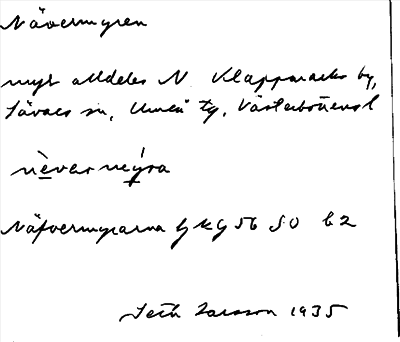 Nävermyren
myr alldeles N Klappmarks by,
Sävars sn, Umeå tg, Västerbottens l
nèvermy̆ra
Näfvermyrarna GKG 56 SO b2
Seth Larsson 1935